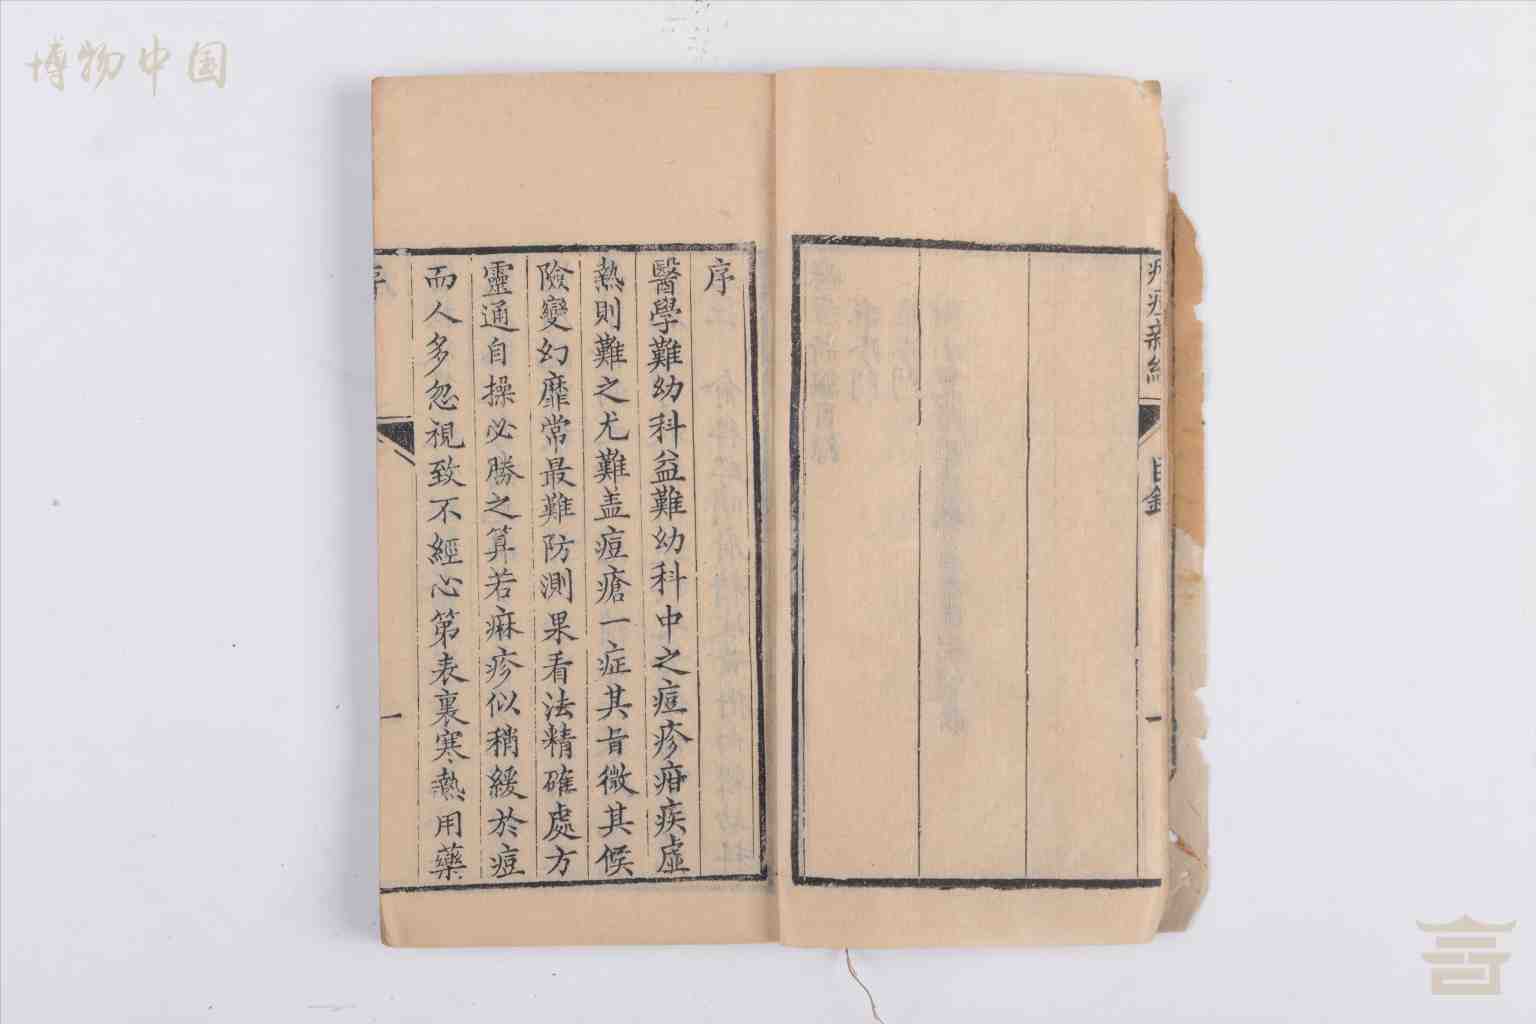 博物中国
目錄
一
序
醫學難幼科益難幼科中之痘疹疳疾虛
熱則難之尤難盖痘瘡一症其旨微其候
險變幻靡常最難防測果看法精確處方
靈通自操必勝之算若痳疹似稍緩於痘
而人多忽視致不經心第表裏寒熱用藥
序
一